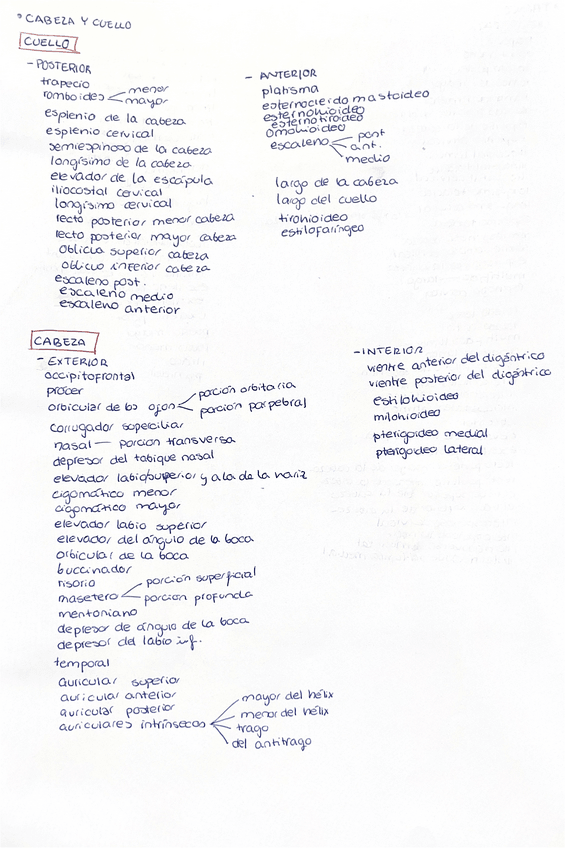 ° CABEZA Y CUELLO
CUELLO
- POSTERIOR
trapecio
romboides menor
mayor
esplenio de la cabeza
esplenio cervical
semiespinoso de la cabeza
longísimo de la cabeza
elevador de la escápula
iliocostal cervical
longísimo cervical
recto posterior menor cabeza
recto posterior mayor cabeza
oblicua superior cabeza
oblicuo inferior cabeza
escaleno post.
escaleno medio
escaleno anterior
- ANTERIOR
platisma
esternocleido mastoideo
esternohioideo
esternotiroideo
omohioideo
escaleno post
ant.
medio
largo de la cabeza
largo del cuello
tirohioideo
estilofaríngeo
CABEZA
- EXTERIOR
occipitofrontal
prócer
orbicular de los ojos porción orbitaria
porción parpebral
corrugador superciliar
nasal — porción transversa
depresor del tabique nasal
elevador labio superior y ala de la nariz
cigomático menor
cigomático mayor
elevador labio superior
elevador del ángulo de la boca
orbicular de la boca
buccinador
risorio
masetero porción superficial
porción profunda
mentoniano
depresor de ángulo de la boca
depresor del labio inf.
temporal
auricular superior
auricular anterior
auricular posterior
auriculares intrínsecos mayor del hélix
menor del hélix
trago
del antitrago
- INTERIOR
vientre anterior del digástrico
vientre posterior del digástrico
estilohioideo
milohioideo
pterigoideo medial
pterigoideo lateral